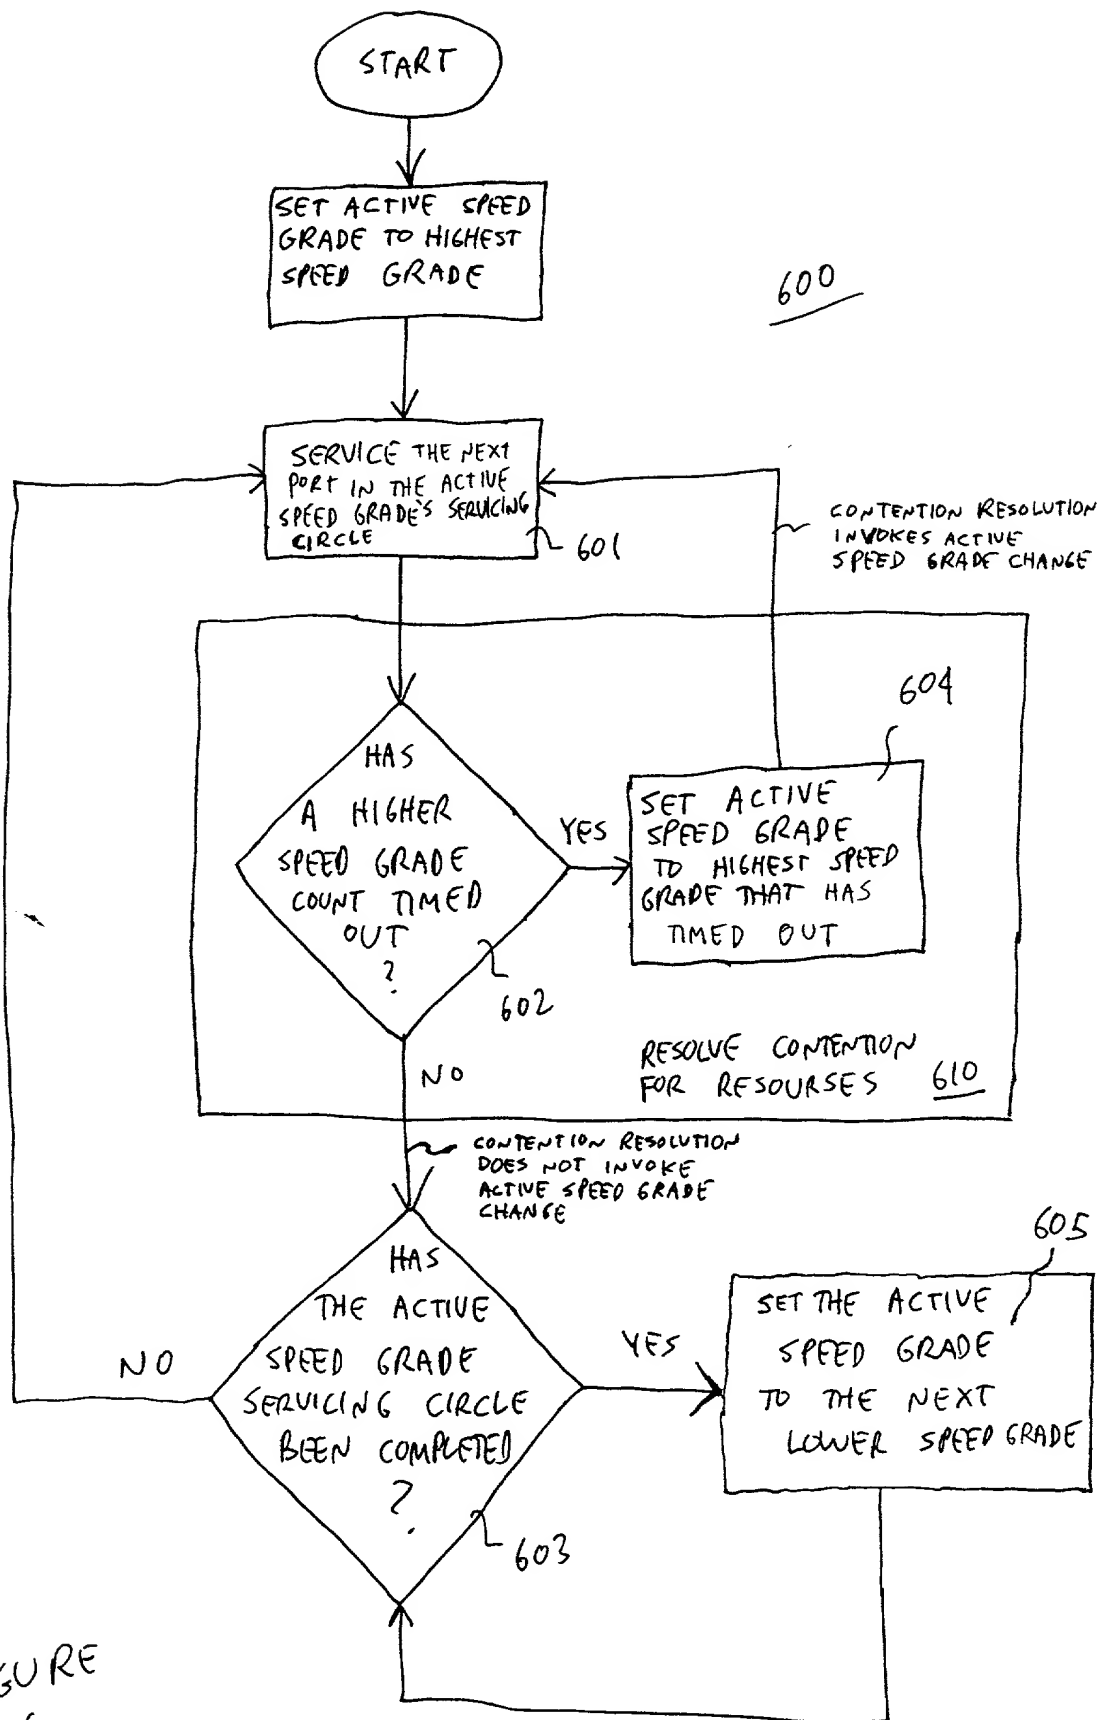 START
SET ACTIVE SPEED
GRADE TO HIGHEST
SPEED GRADE
600
SERVICE THE NEXT
PORT IN THE ACTIVE
SPEED GRADE'S SERVICING
CIRCLE
601
CONTENTION RESOLUTION
INVOKES ACTIVE
SPEED GRADE CHANGE
604
HAS
A HIGHER
SPEED GRADE
COUNT TIMED
OUT
?
602
YES
SET ACTIVE
SPEED GRADE
TO HIGHEST SPEED
GRADE THAT HAS
TIMED OUT
NO
RESOLVE CONTENTION
FOR RESOURSES 610
CONTENTION RESOLUTION
DOES NOT INVOKE
ACTIVE SPEED GRADE
CHANGE
605
HAS
THE ACTIVE
SPEED GRADE
SERVICING CIRCLE
BEEN COMPLETED
?
603
NO
YES
SET THE ACTIVE
SPEED GRADE
TO THE NEXT
LOWER SPEED GRADE
GURE